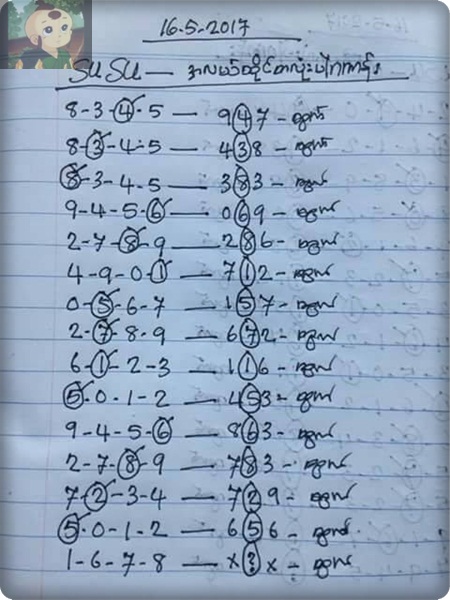 16-5-2017
SU SU — အလယ်ထိုင်တလုံးပါကတ်
8-3-4-5 — 947 - ထွက်
8-3-4-5 — 438 - ထွက်
8-3-4-5 — 383 - ထွက်
9-4-5-6 — 069 - ထွက်
2-7-8-9 — 286 - ထွက်
4-9-0-1 — 712 - ထွက်
0-5-6-7 — 157 - ထွက်
2-7-8-9 — 672 - ထွက်
6-1-2-3 — 116 - ထွက်
5-0-1-2 — 453 - ထွက်
9-4-5-6 — 863 - ထွက်
2-7-8-9 — 783 - ထွက်
7-2-3-4 — 729 - ထွက်
5-0-1-2 — 656 - ထွက်
1-6-7-8 — x?x - ထွက်